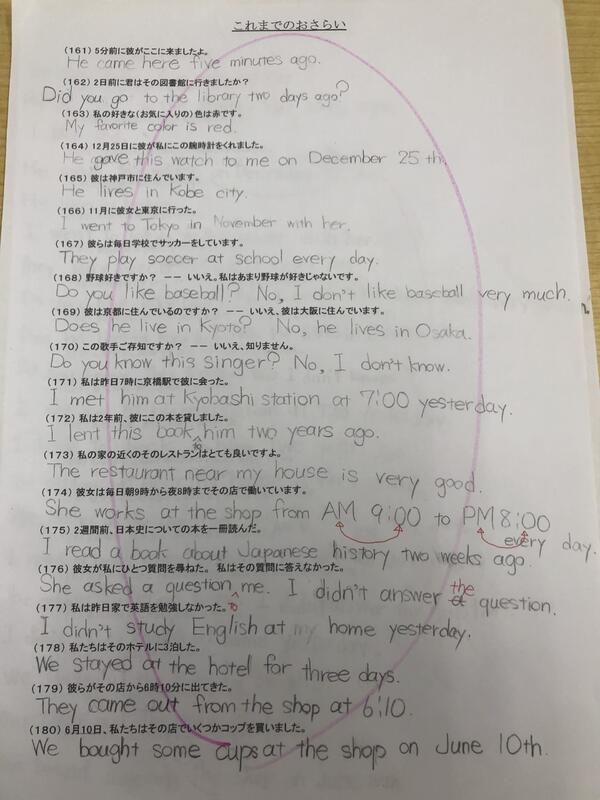 これまでのおさらい
(161) 5分前に彼がここに来ましたよ。
He came here five minutes ago.
(162) 2日前に君はその図書館に行きましたか?
Did you go to the library two days ago?
(163) 私の好きな(お気に入りの)色は赤です。
My favorite color is red.
(164) 12月25日に彼が私にこの腕時計をくれました。
He gave this watch to me on December 25 th.
(165) 彼は神戸市に住んでいます。
He lives in Kobe city.
(166) 11月に彼女と東京に行った。
I went to Tokyo in November with her.
(167) 彼らは毎日学校でサッカーをしています。
They play soccer at school every day.
(168) 野球好きですか? ーー いいえ。私はあまり野球が好きじゃないです。
Do you like baseball? No, I don't like baseball very much.
(169) 彼は京都に住んでいるのですか? ーー いいえ、彼は大阪に住んでいます。
Does he live in Kyoto? No, he lives in Osaka.
(170) この歌手ご存知ですか? ーー いいえ、知りません。
Do you know this singer? No, I don't know.
(171) 私は昨日7時に京橋駅で彼に会った。
I met him at Kyobashi station at 7:00 yesterday.
(172) 私は2年前、彼にこの本を貸しました。
I lent this book to him two years ago.
(173) 私の家の近くのそのレストランはとても良いですよ。
The restaurant near my house is very good.
(174) 彼女は毎日朝9時から夜8時までその店で働いています。
She works at the shop from AM 9:00 to PM 8:00
every day.
(175) 2週間前、日本史についての本を一冊読んだ。
I read a book about Japanese history two weeks ago.
(176) 彼女が私にひとつ質問を尋ねた。 私はその質問に答えなかった。
She asked a question to me. I didn't answer the question.
(177) 私は昨日家で英語を勉強しなかった。
I didn't study English at my home yesterday.
(178) 私たちはそのホテルに3泊した。
We stayed at the hotel for three days.
(179) 彼らがその店から6時10分に出てきた。
They came out from the shop at 6:10.
(180) 6月10日、私たちはその店でいくつかコップを買いました。
We bought some cups at the shop on June 10th.